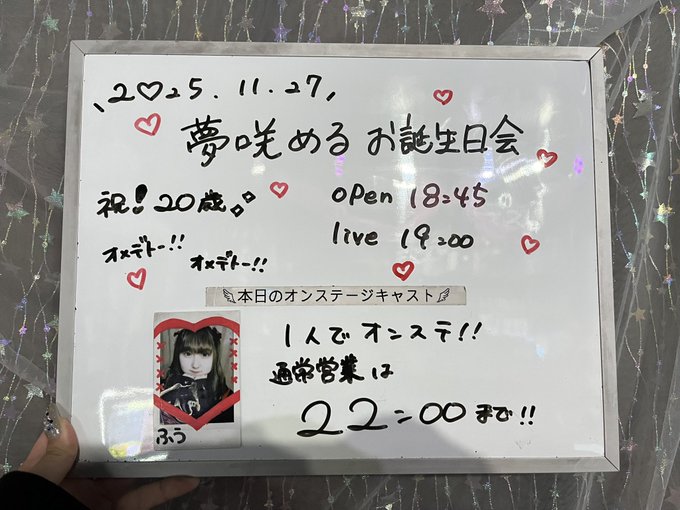 、2♡25.11.27,
夢咲める お誕生日会
祝!20歳
オメデトー!!
オメデトー!!
open 18:45
live 19:00
本日のオンステージキャスト
1人でオンステ!!
通常営業は
22:00まで!!
ふう